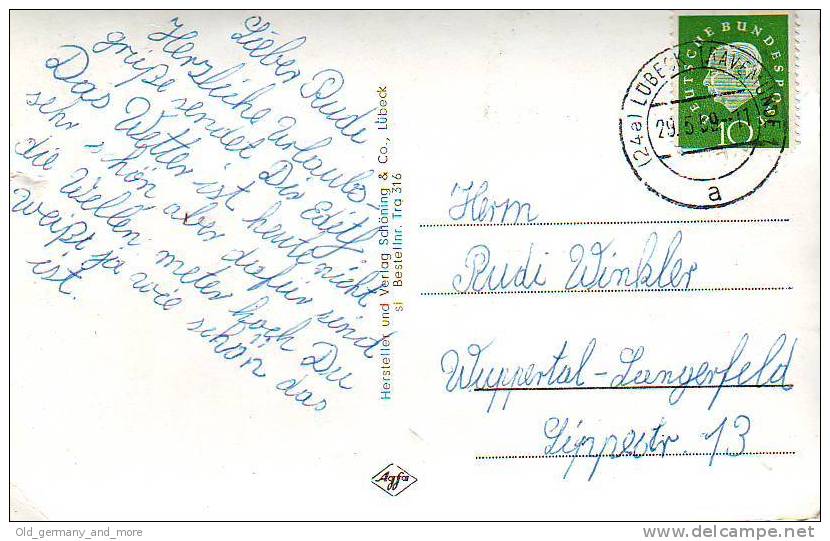 Lieber Rudi
Herzliche Urlaubs-
grüße sendet Dir Edith
Das Wetter ist heute nicht
sehr schön aber dafür sind
die Wellen meter hoch Du
weißt ja wie schön das
ist.
Hersteller und Verlag Schöning & Co., Lübeck
si Bestellnr. Tra 316
DEUTSCHE BUNDESPOST
10
(24a) LÜBECK-TRAVEMÜNDE 1
29.5.59
a
Herrn
Rudi Winkler
Wuppertal-Langerfeld
Lippestr. 13
Agfa
Old_germany_and_more
delcampe.net